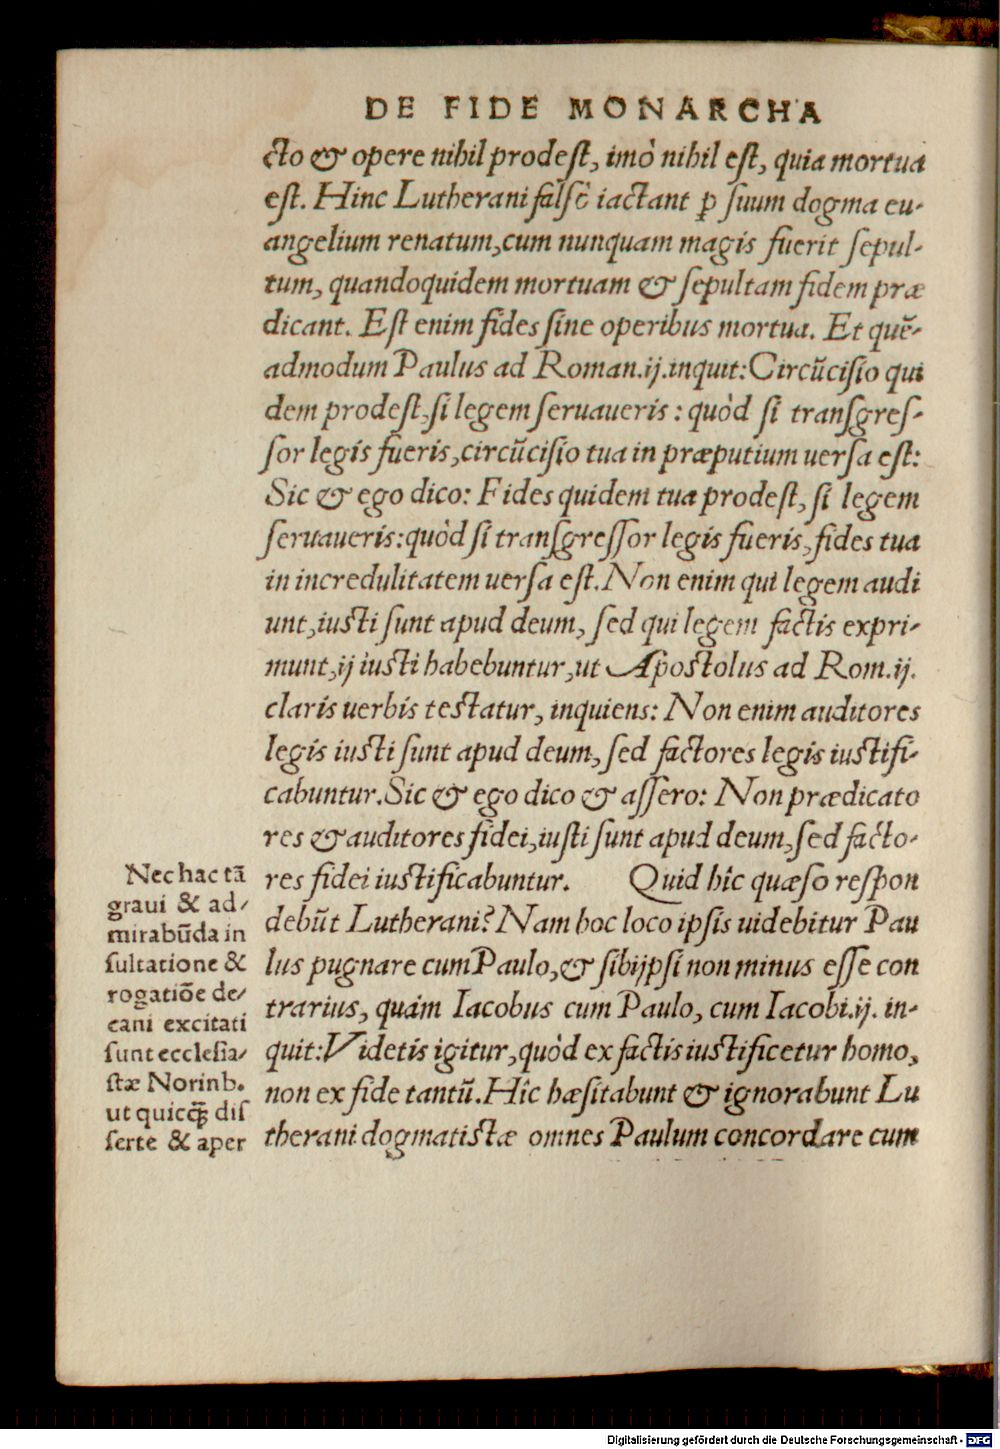 DE FIDE MONARCHA
cto & opere nihil prodeſt, imò nihil eſt, quia mortua
eſt. Hinc Lutherani falſò iactant ꝑ ſuum dogma eu-
angelium renatum, cum nunquam magis fuerit ſepul-
tum, quandoquidem mortuam & ſepultam fidem præ
dicant. Eſt enim fides ſine operibus mortua. Et quẽ-
admodum Paulus ad Roman.ij.inquit: Circũciſio qui
dem prodeſt, ſi legem ſeruaueris : quòd ſi tranſgreſ-
ſor legis fueris, circũciſio tua in præputium uerſa eſt:
Sic & ego dico: Fides quidem tua prodeſt, ſi legem
ſeruaueris: quòd ſi tranſgreſſor legis fueris, fides tua
in incredulitatem uerſa eſt. Non enim qui legem audi
unt, iuſti ſunt apud deum, ſed qui legem factis expri-
munt, ij iuſti habebuntur, ut Apoſtolus ad Rom.ij.
claris uerbis teſtatur, inquiens: Non enim auditores
legis iuſti ſunt apud deum, ſed factores legis iuſtifi-
cabuntur. Sic & ego dico & aſſero: Non prædicato
res & auditores fidei, iuſti ſunt apud deum, ſed facto-
res fidei iuſtificabuntur. Quid hîc quæſo reſpon
debũt Lutherani? Nam hoc loco ipſis uidebitur Pau
lus pugnare cum Paulo, & ſibijpſi non minus eſſe con
trarius, quàm Iacobus cum Paulo, cum Iacobi.ij. in-
quit: Videtis igitur, quòd ex factis iuſtificetur homo,
non ex fide tantũ. Hîc hæſitabunt & ignorabunt Lu
therani dogmatiſtæ omnes Paulum concordare cum
Nec hac tã
graui & ad-
mirabũda in
ſultatione &
rogatiõe de-
cani excitati
ſunt eccleſia-
ſtæ Norinb.
ut quicꝗ̃ diſ
ſerte & aper
Digitalisierung gefördert durch die Deutsche Forschungsgemeinschaft - DFG